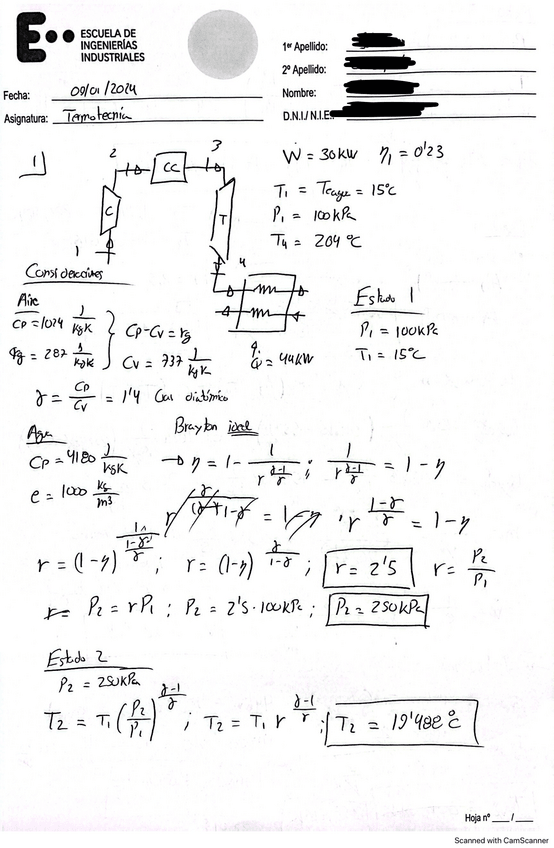 ESCUELA DE
INGENIERÍAS
INDUSTRIALES
1er Apellido:
2º Apellido:
Nombre:
D.N.I./ N.I.E:
Fecha: 09/01/2024
Asignatura: Termotecnia
1
2 3
CC
C T
1 4
Ẇ = 30kW η₁ = 0'23
T₁ = Tagua = 15ºC
P₁ = 100kPa
T₄ = 204 ºC
Consideraciones
Aire
Cp = 1024 J/kgK
rg = 287 J/kgK
Cp - Cv = rg
Cv = 737 J/kgK
γ = Cp/Cv = 1'4 Gas diatómico
Q̇ = 44kW
Estado 1
P₁ = 100kPa
T₁ = 15ºC
Agua
Cp = 4180 J/kgK
ρ = 1000 kg/m³
Brayton ideal
→ η = 1 - 1/r^((γ-1)/γ) ; 1/r^((γ-1)/γ) = 1 - η
r^((1-γ)/γ) = 1 - η
r = (1-η)^(1/((1-γ)/γ)) ; r = (1-η)^(γ/(1-γ)) ; r = 2'5 r = P₂/P₁
P₂ = rP₁ ; P₂ = 2'5·100kPa ; P₂ = 250kPa
Estado 2
P₂ = 250kPa
T₂ = T₁(P₂/P₁)^((γ-1)/γ) ; T₂ = T₁ r^((γ-1)/γ) ; T₂ = 19'488ºC
Hoja nº ___/___
Scanned with CamScanner